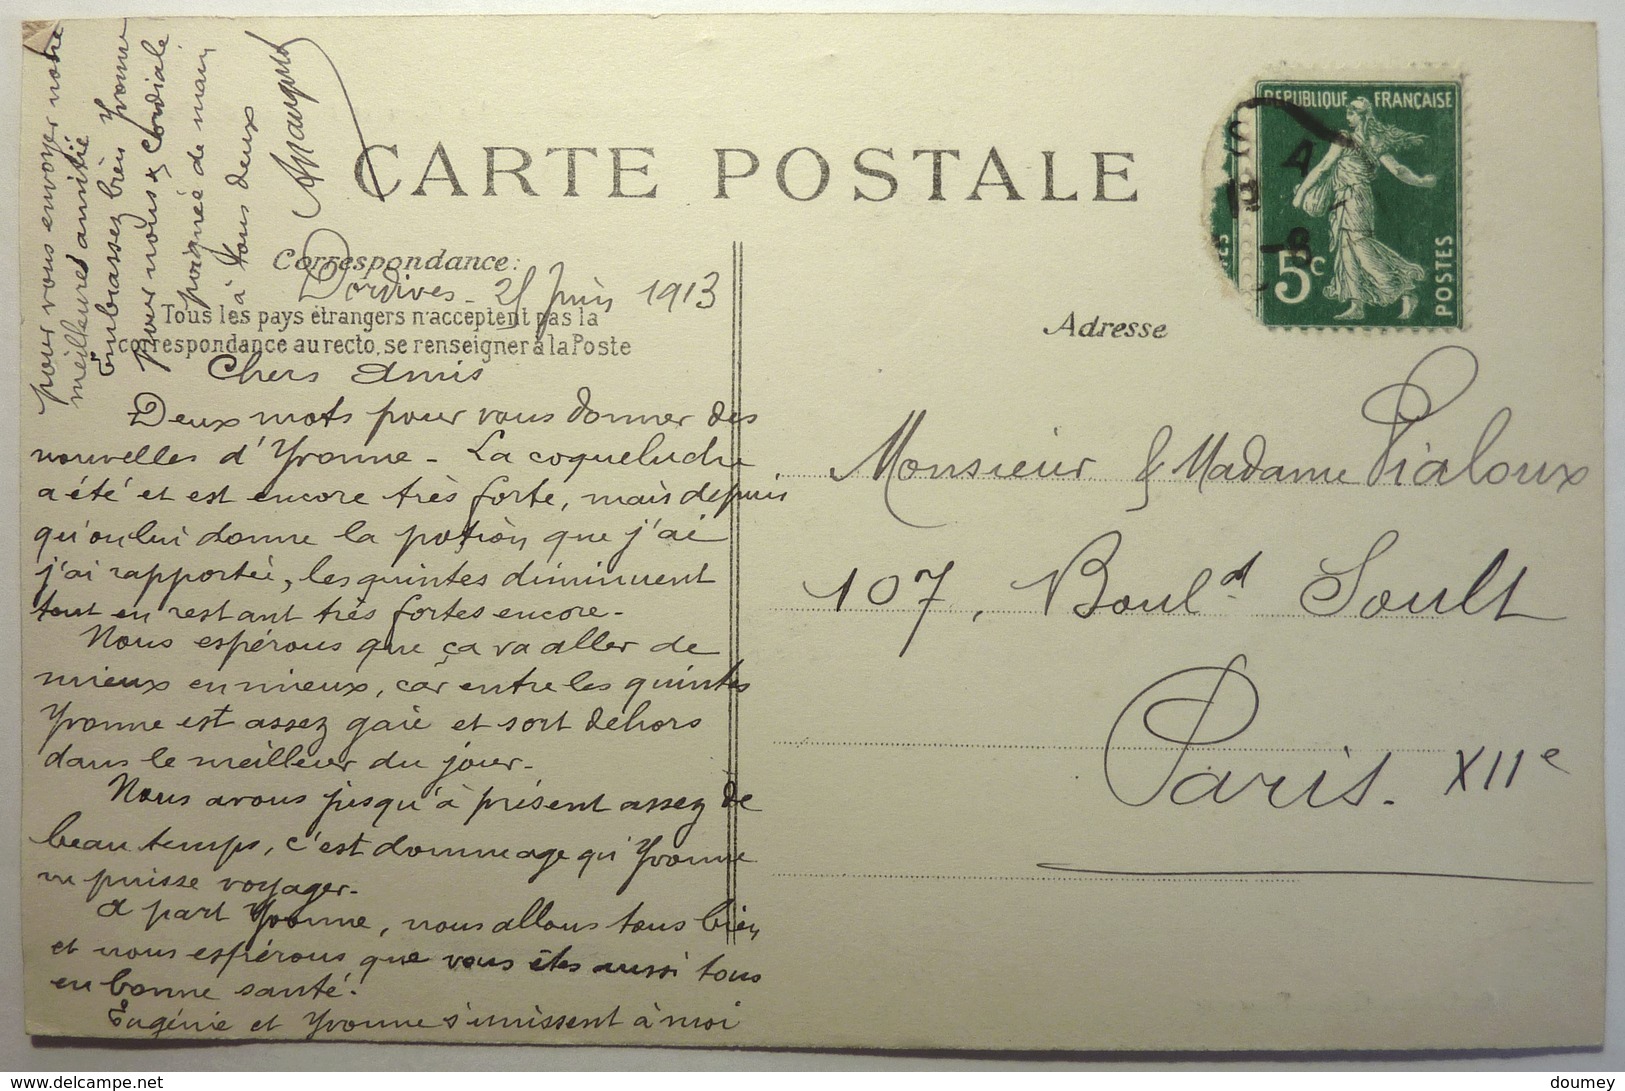 CARTE POSTALE
Correspondance:
Dordives - 25 Juin 1913
Tous les pays étrangers n'acceptent pas la
correspondance au recto, se renseigner à la Poste
Chers Amis
Deux mots pour vous donner des
nouvelles d'Yvonne - La coqueluche
a été et est encore très forte, mais depuis
qu'on lui donne la potion que j'ai
j'ai rapportée, les quintes diminuent
tout en restant très fortes encore -
Nous espérons que ça va aller de
mieux en mieux, car entre les quintes
Yvonne est assez gaie et sort dehors
dans le meilleur du jour -
Nous avons jusqu'à présent assez de
beau temps, c'est dommage qu'Yvonne
ne puisse voyager -
A part Yvonne, nous allons tous bien
et nous espérons que vous êtes aussi tous
en bonne santé.
Eugénie et Yvonne s'unissent à moi
pour vous envoyer notre
meilleures amitié
Embrassez bien Yvonne
pour nous & cordiale
poignée de main
à tous deux
Adresse
Monsieur & Madame Pialoux
107, Boul.d Soult
Paris. XIIe
REPUBLIQUE FRANÇAISE
5c
POSTES
delcampe.net
doumey